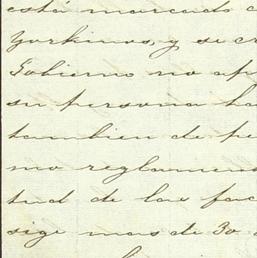 está marcado c
yorkinos, y se cr
Gobierno no ap
su persona ha
tambien de pe
mo reglament
tud de las fac
sige mas de 30